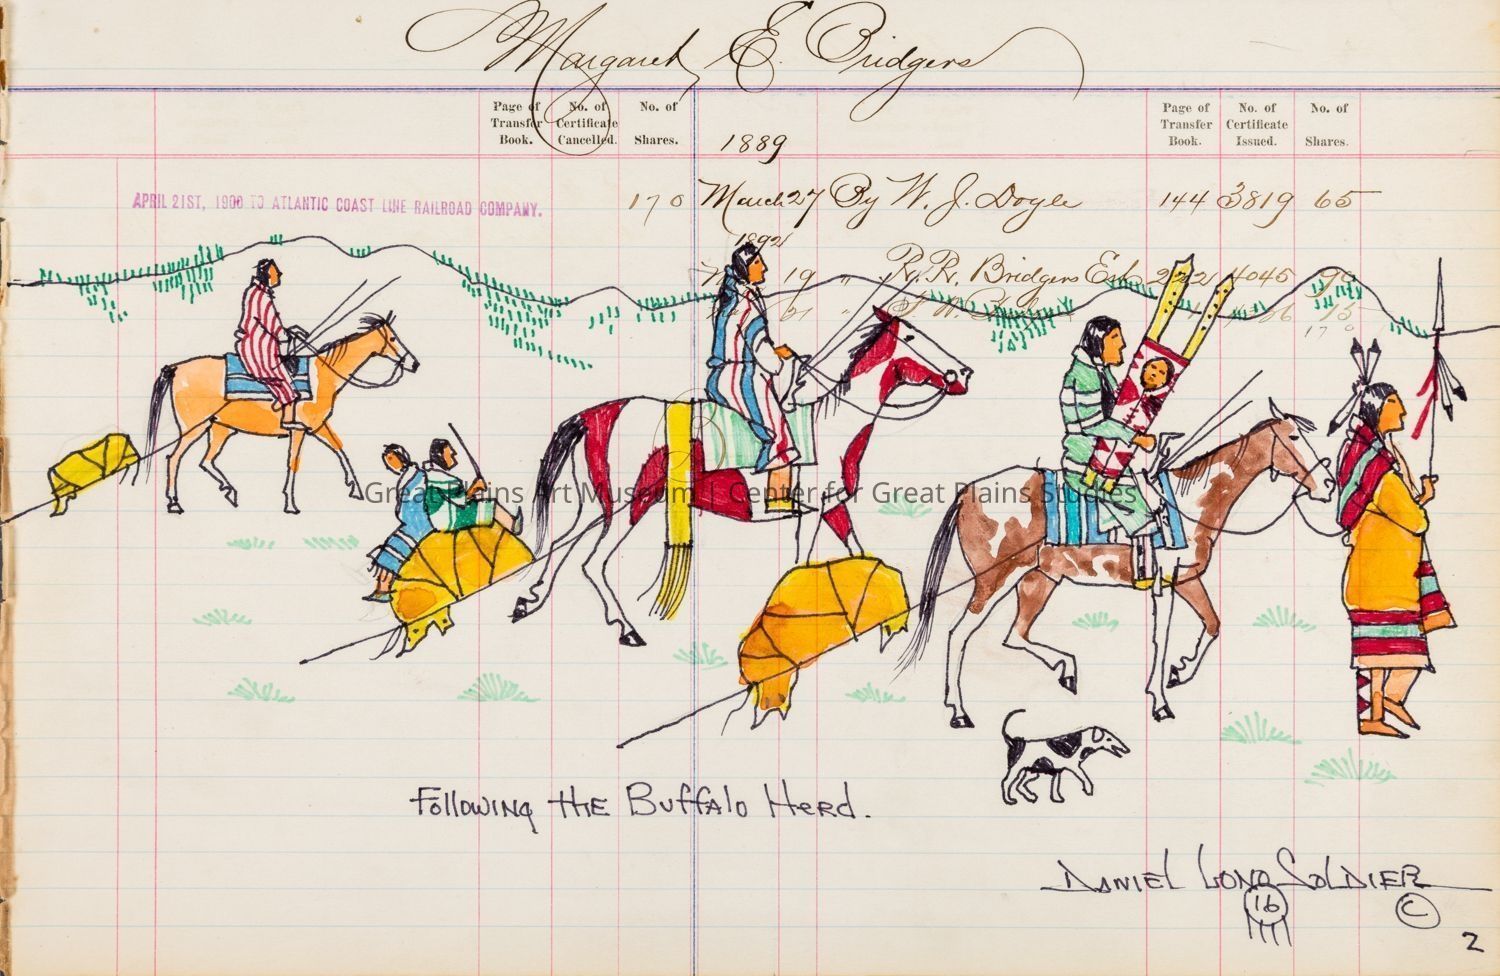 Margaret E. Bridgers
Page of Transfer Book.
No. of Certificate Cancelled.
No. of Shares.
1889
Page of Transfer Book.
No. of Certificate Issued.
No. of Shares.
APRIL 21ST, 1900 TO ATLANTIC COAST LINE RAILROAD COMPANY.
170 March 27 By W. J. Doyle 144 3819 65
1892
19 " R. R. Bridgers 2221 4045 90
15
170
Great Plains Art Museum | Center for Great Plains Studies
Following the Buffalo Herd.
DANIEL LONG SOLDIER
16
©
2